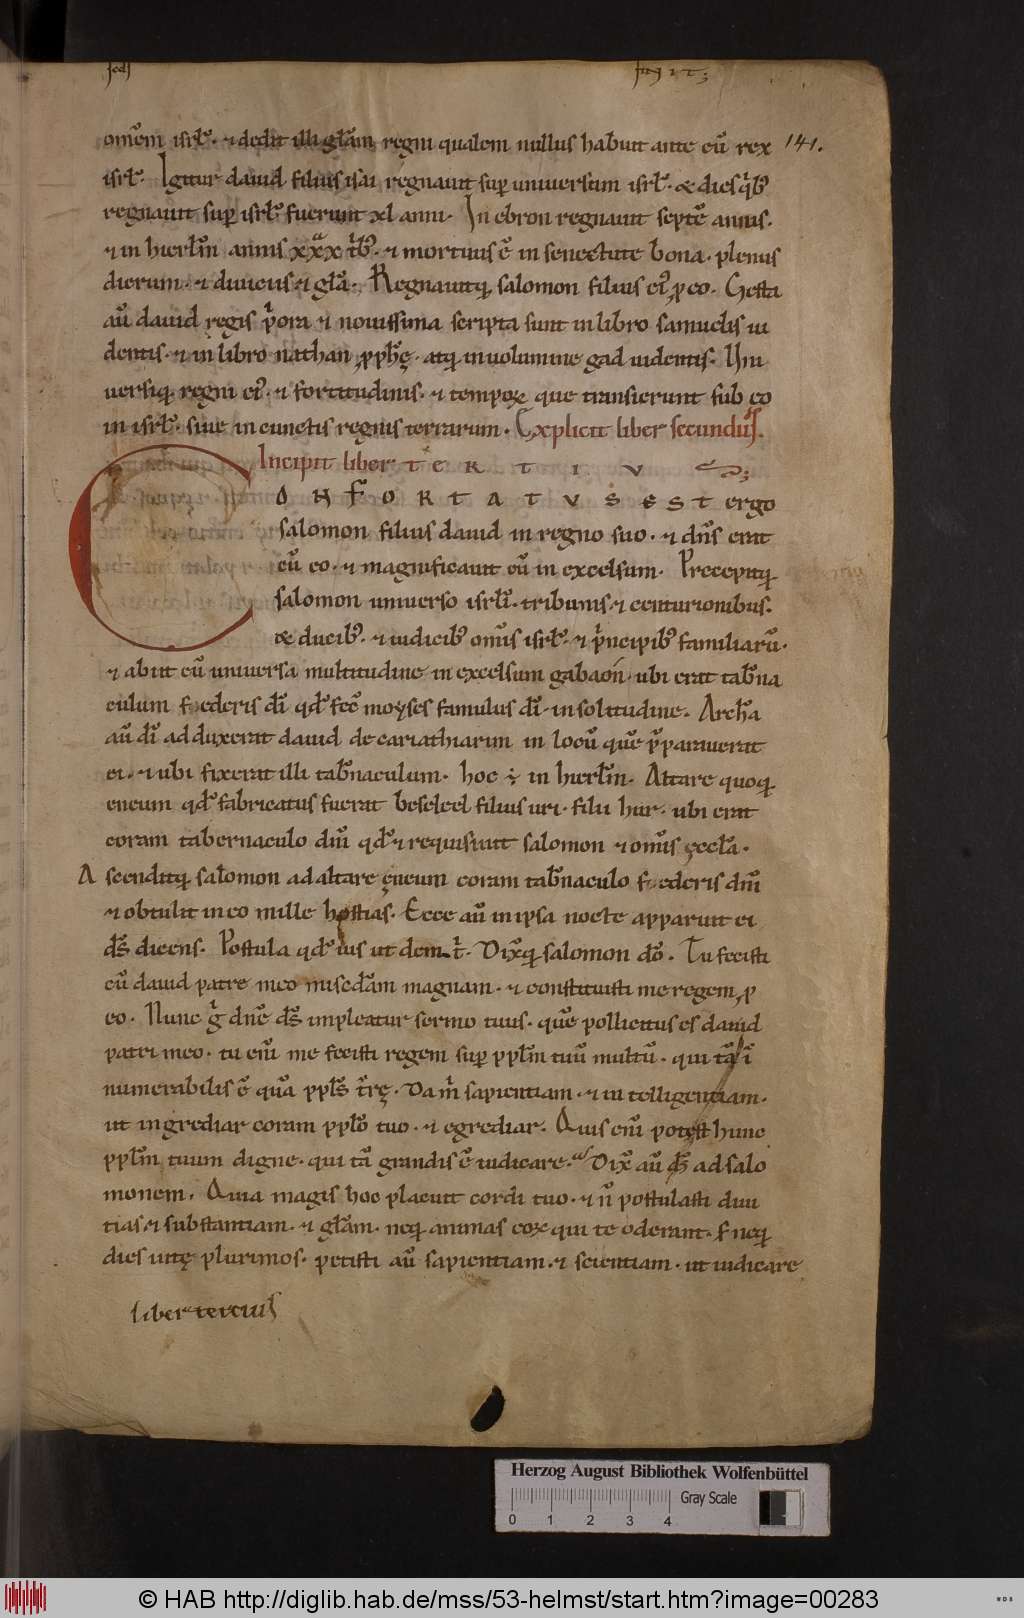 141.
om̄em isrl̄. ⁊ dedit illi gl̄am regni qualem nullus habuit ante eū rex
isrl̄. Igitur dauid filius isai regnauit sup uniuersum isrl̄. & dies q̇bꝰ
regnauit sup isrl̄ fuerunt xl anni. In ebron regnauit septē annis.
⁊ in hierl̄m annis xxx t̓bꝰ. ⁊ mortuus ē in senectute bona. plenus
dierum. ⁊ diuiciis ⁊ gl̄a. Regnauitq; salomon filius eiꝰ ꝓ eo. Gesta
aū dauid regis p̓ora ⁊ nouissima scripta sunt in libro samuelis ui
dentis. ⁊ in libro nathan ꝓph̄ę. atq; in uolumine gad uidentis. Vni
uersiq; regni eiꝰ. ⁊ fortitudinis. ⁊ tempoꝝ que transierunt sub eo
in isrl̄. siue in cunctis regnis terrarum. Explicit liber secundus.
Incipit liber TERTIVS;
CONFORTATVS EST ergo
salomon filius dauid in regno suo. ⁊ dn̄s erat
cū eo. ⁊ magnificauit eū in excelsum. Precepitq;
salomon uniuerso isrl̄i. tribunis ⁊ centurionibus.
& ducibꝰ. ⁊ iudicibꝰ om̄is isrl̄. ⁊ p̓ncipibꝰ familiarū.
⁊ abiit cū uniuersa multitudine in excelsum gabaon. ubi erat tab̄na
culum foederis dī qd̄ fec̄ moyses famulus dī in solitudine. Archā
aū dī adduxerat dauid de cariathiarim in locū quē p̄parauerat
ei. ⁊ ubi fixerat illi tab̄naculum. hoc ÷ in hierl̄m. Altare quoq;
eneum qd̄ fabricatus fuerat beseleel filius uri. filii hur. ubi erat
coram tabernaculo dn̄i qd̄ ⁊ requisiuit salomon ⁊ om̄is ęccl̄a.
Ascenditq; salomon ad altare ęneum coram tab̄naculo foederis dn̄i
⁊ obtulit in eo mille hostias. Ecce aū in ipsa nocte apparuit ei
ds̄ dicens. Postula qd̄ uis ut dem t̓. Dix̄q; salomon dō. Tu fecisti
cū dauid patre meo mīscd̄am magnam. ⁊ constituisti me regem ꝓ
eo. Nunc g̓ dn̄e ds̄ impleatur sermo tuus. quē pollicitus es dauid
patri meo. tu eni̅ me fecisti regem sup ppl̄m tuū multū. qui tā ī
numerabilis ē quā ppl̄s t̄rę. Da m̓ sapientiam. ⁊ intelligentiam.
ut ingrediar coram ppl̄o tuo. ⁊ egrediar. Quis eni̅ potest hunc
ppl̄m tuum digne. qui tā grandis ē iudicare. Dix̄ aū ds̄ ad salo
monem. Quia magis hoc placuit cordi tuo. ⁊ n̄ postulasti diui
tias ⁊ substantiam. ⁊ gl̄am. neq; animas eoꝝ qui te oderant. s; neq;
dies uitę plurimos. petisti aū sapientiam. ⁊ scientiam. ut iudicare
liber tercius
Herzog August Bibliothek Wolfenbüttel
Gray Scale
0 1 2 3 4
© HAB http://diglib.hab.de/mss/53-helmst/start.htm?image=00283